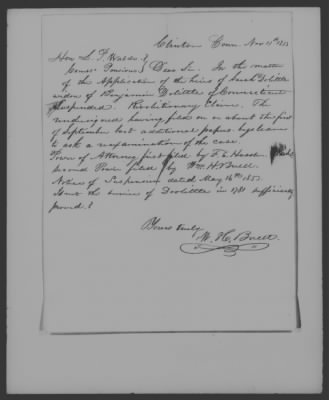 Clinton Conn. Nov 11th 1853
Hon L. P. Waldo }
Comr Pensions } Dear Sir. In the matter
of the Application of the heirs of Sarah Dolittle
widow of Benjamin Dolittle of Connecticut
Suspended. Revolutionary Claim. The
undersigned having filed on or about the first
of September last additional papers begs leave
to ask a reexamination of the case.
Power of Attorney first filed by F. E.
Second Power filed by Wm. H. Buell.
Notice of Suspension dated May 16th 1853.
Is not the service of Doolittle in 1781 sufficiently
proved?
Yours truly
W. H. Buell